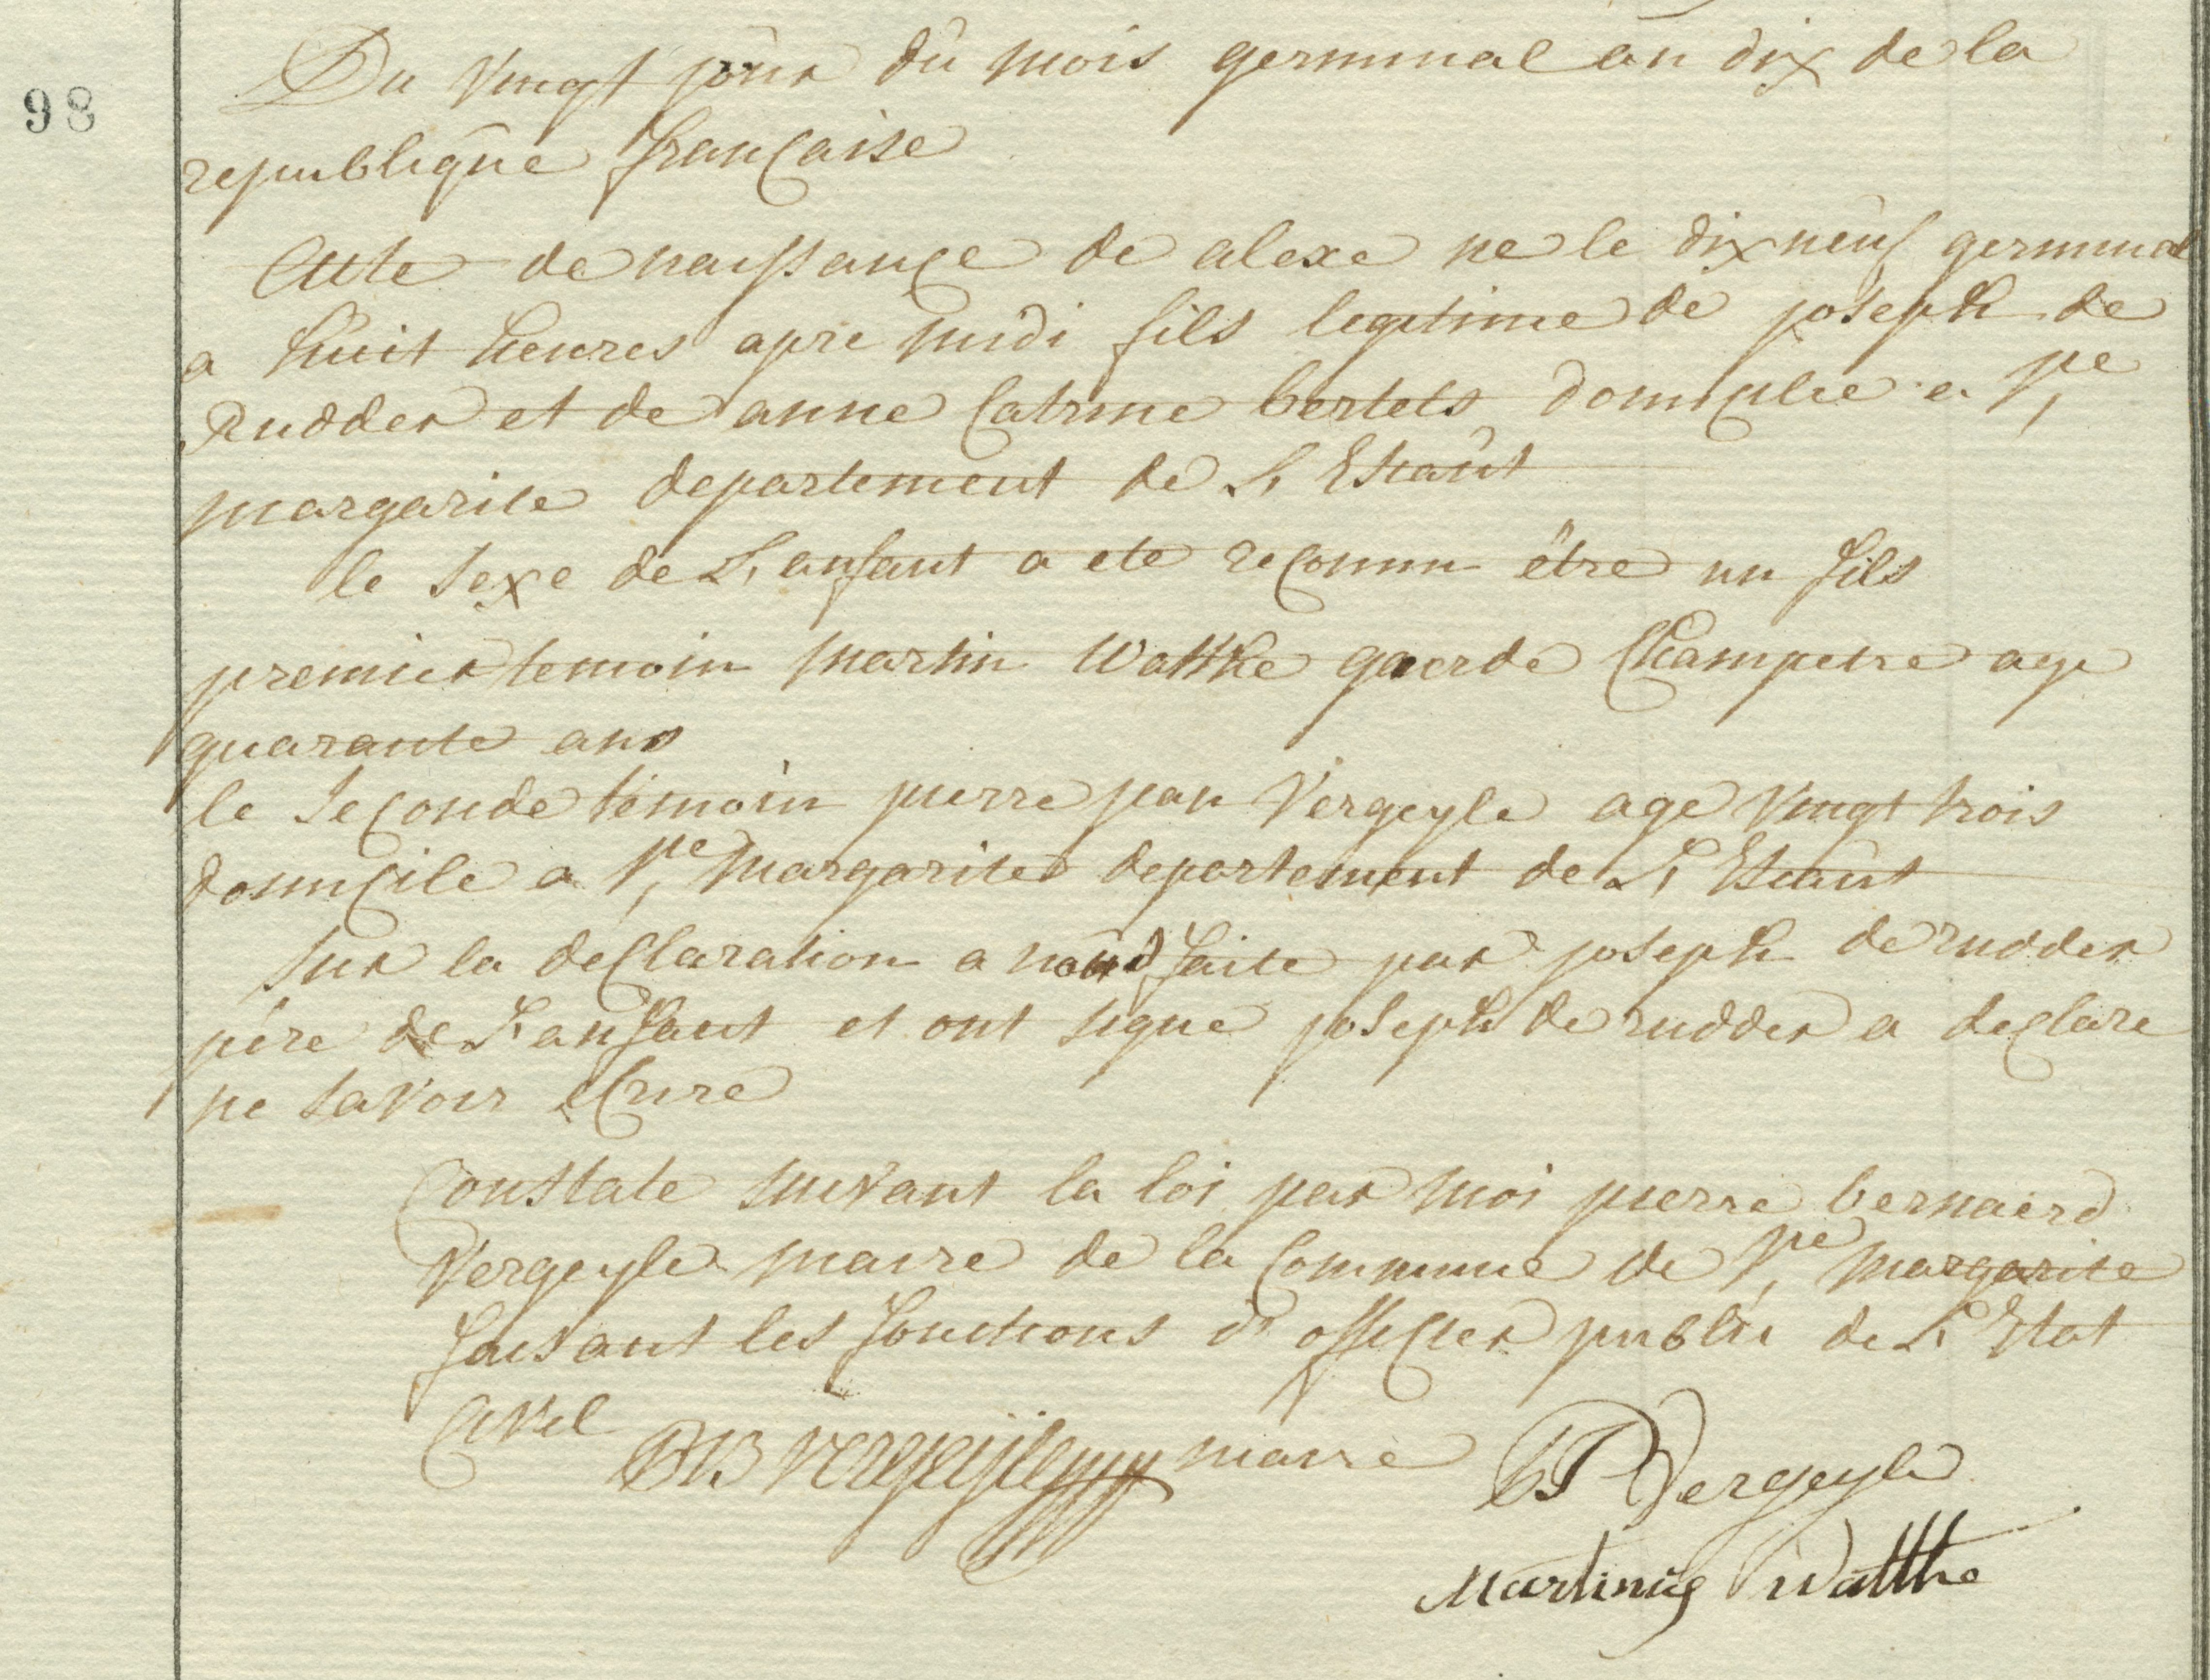 98
Du vingt jour du mois germinal an dix de la
republique française
Acte de naissance de alexe ne le dix neuf germinal
a huit heures apre midi fils legitime de joseph de
Rudder et de anne Catrine bertels domicilie a Ste
margarite departement de L'Escaut
le sexe de L'anfant a ete reconnu être un fils
premier temoin martin Watthe gaerde Champetre age
quarante ans
le Seconde temoin pierre jean Vergeyle age vingt trois
domicile a Ste margarite departement de L'Escaut
sur la declaration a nous faite par joseph de rudder
père de L'anfant et ont signe joseph de rudder a declare
ne savoir ecrire
Constate suivant la loi par moi pierre bernaerd
Vergeyle maire de la Commune de Ste margarite
faisant les fonctions d'officier public de L'Etat
Civil
PB vergeijle maire
PJ Vergeyle
Martinus Watthe